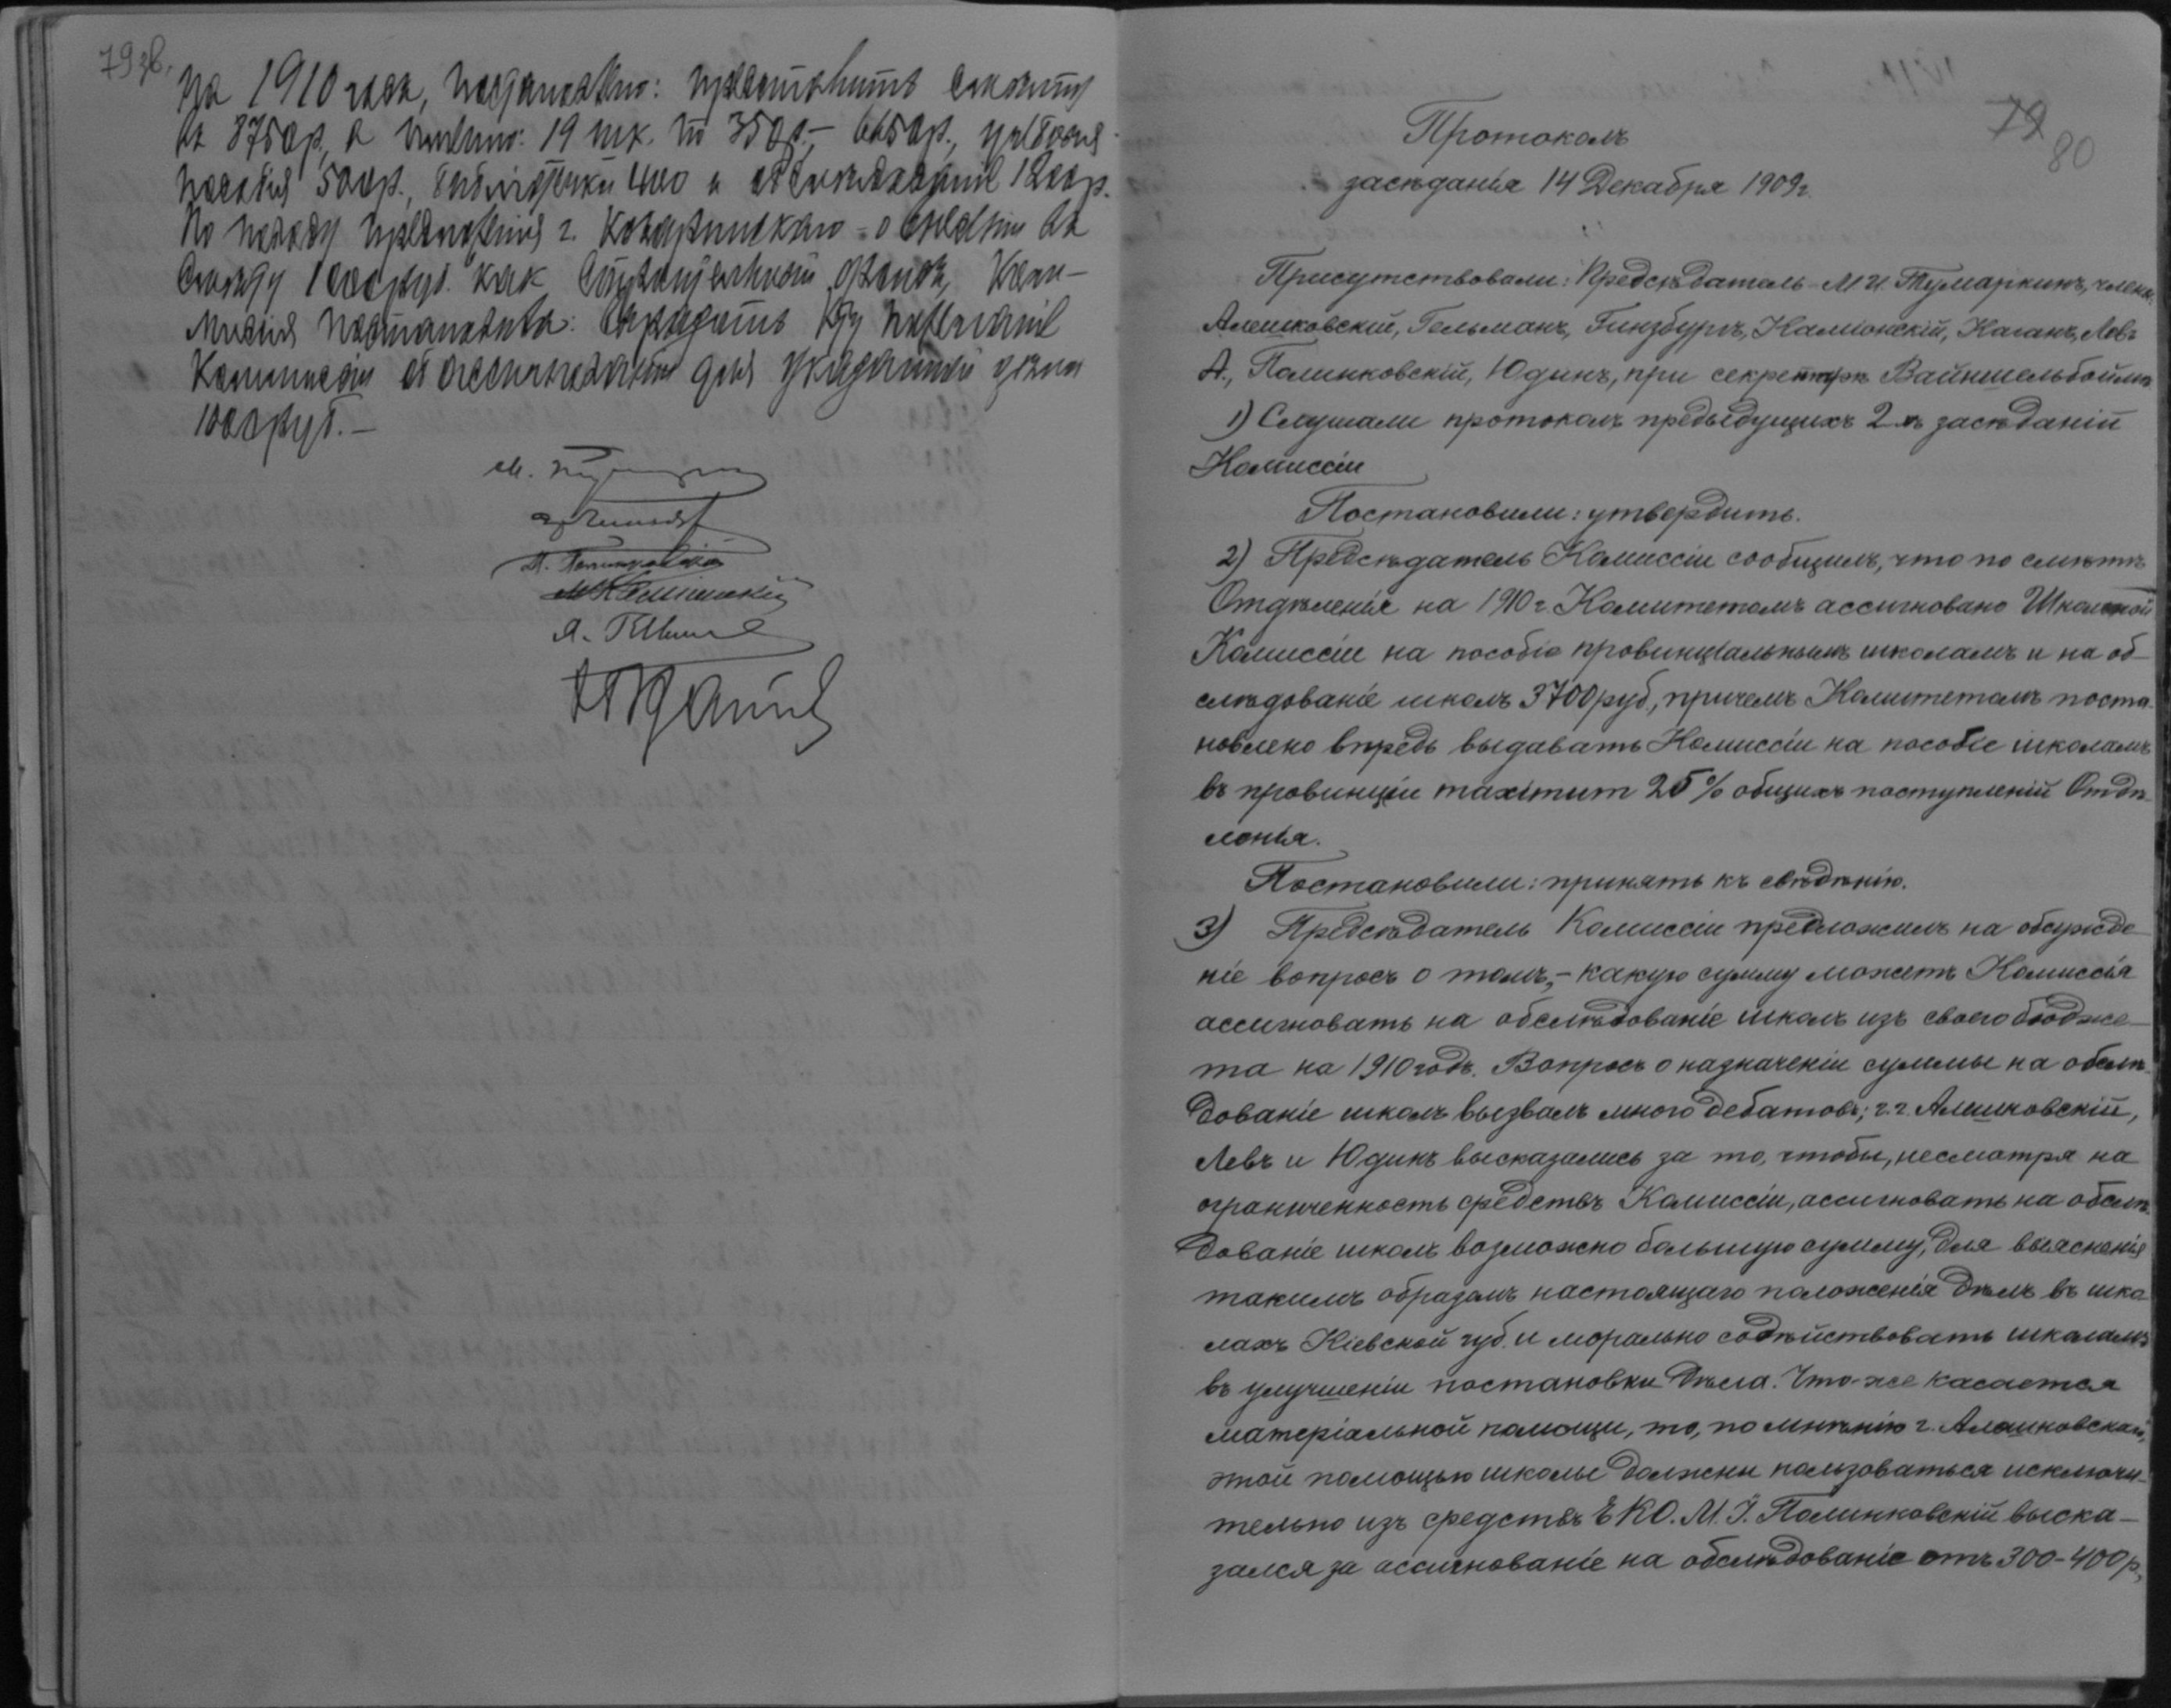 79 зв.
На 1910 годъ, постановлено: представить смѣту
въ 8750р., а именно: 19 шк. по 350р.– 6650р., учебныя
пособія 500р., библіотечки 400 и обслѣдованіе 1200р.
По поводу предложенія г. – о внесеніи въ
смѣту 1000руб. как строительный фондъ, Ком-
миссія постановила: выразить пожеланіе
Коммиссіи об ассигнованіи для указанной цѣли
1000руб.–
79
80
Протоколъ
засѣданія 14 Декабря 1909г.
Присутствовали: Предсѣдатель М. И. Тумаркинъ, члены:
Алешковскій, Гельманъ, Гинзбургъ, Каміонскій, Каганъ, Левъ
А., Полинковскій, Юдинъ, при секретарѣ Вайншельбоймъ
1) Слушали протоколъ предыдущихъ 2-хъ засѣданій
Комиссіи
Постановили: утвердить.
2) Предсѣдатель Комиссіи сообщилъ, что по смѣтѣ
Отдѣленія на 1910 г. Комитетомъ ассигновано Школьной
Комиссіи на пособіе провинціальнымъ школамъ и на об-
слѣдованіе школъ 3700 руб., причемъ Комитетомъ поста-
новлено впредь выдавать Комиссіи на пособіе школамъ
въ провинціи maximum 25% общихъ поступленій Отдѣ-
ленія.
Постановили: принять къ свѣдѣнію.
3) Предсѣдатель Комиссіи предложилъ на обсужде-
ніе вопросъ о томъ,– какую сумму можетъ Комиссія
ассигновать на обслѣдованіе школъ изъ своего бюдже-
та на 1910 годъ. Вопросъ о назначеніи суммы на обслѣ-
дованіе школъ вызвалъ много дебатовъ; г.г. Алешковскій,
Левъ и Юдинъ высказались за то, чтобы, несмотря на
ограниченность средствъ Комиссіи, ассигновать на обслѣ-
дованіе школъ возможно большую сумму, для выясненія
такимъ образомъ настоящаго положенія дѣлъ въ шко-
лахъ Кіевской губ. и морально содѣйствовать школамъ
въ улучшеніи постановки дѣла. Что-же касается
матеріальной помощи, то, по мнѣнію г. Алешковскаго,
этой помощью школы должны пользоваться исключи-
тельно изъ средствъ ЕКО. М. І. Полинковскій выска-
зался за ассигнованіе на обслѣдованіе отъ 300-400 р.,